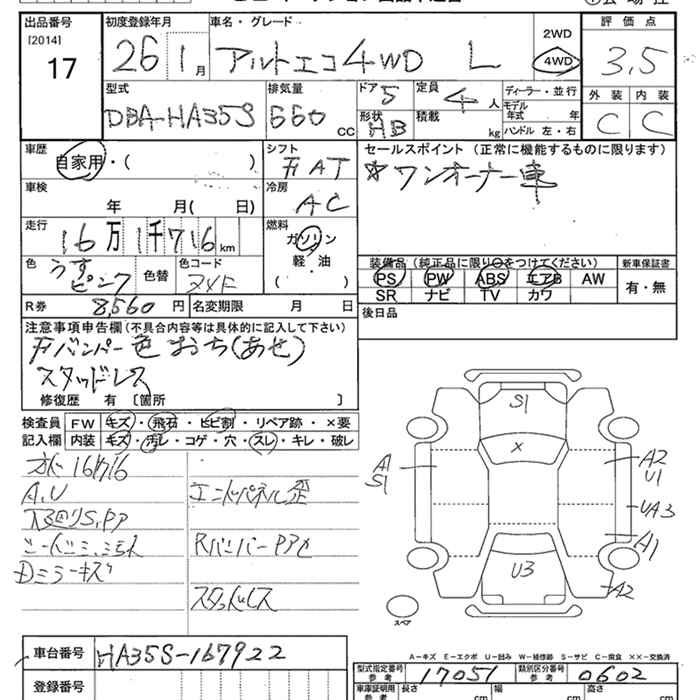 出品番号 初度登録年月 車名・グレード 2WD 評価点
[2014]
17 26 1月 アルトエコ4WD L 4WD 3.5
型式 排気量 ドア 5 定員 4人 ディーラー・並行 外装 内装
DBA-HA35S 660 CC 形状 HB 積載 kg モデル年式 年 C C
ハンドル 左・右
車歴 シフト セールスポイント (正常に機能するものに限ります)
自家用・( ) F AT ☆ワンオーナー車
車検 冷房
年 月( 日) AC
走行 燃料
16万1千716km ガソリン
軽・油
( )
色 うすピンク 色替 色コード ZYF
装備品 (純正品に限り○をつけてください) 新車保証書
PS PW ABS エアB AW 有・無
SR ナビ TV カワ
R券 8,560円 名変期限 月 日 後日品
注意事項申告欄(不具合内容等は具体的に記入して下さい)
Fバンパー色おち(あせ)
スタッドレス
修復歴 有 〔箇所 〕
検査員 FW キズ・飛石・ヒビ割・リペア跡・×要
記入欄 内装 キズ・汚レ・コゲ・穴・スレ・キレ・破レ
161716
A.U エンドパネル歪
S,PA
RバンパーPAC
ミラーキズ
スタッドレス
S1
X
A1
S1
A2
U1
UA3
A1
U3
A2
スペア
A−キズ E−エクボ U−凹み W−補修跡 S−サビ C−腐食 ××−交換済
車台番号 HA35S-167922
型式指定番号 参考 17051 類別区分番号 参考 0602
登録番号
車庫証明用 参考 長さ cm 幅 cm 高さ cm